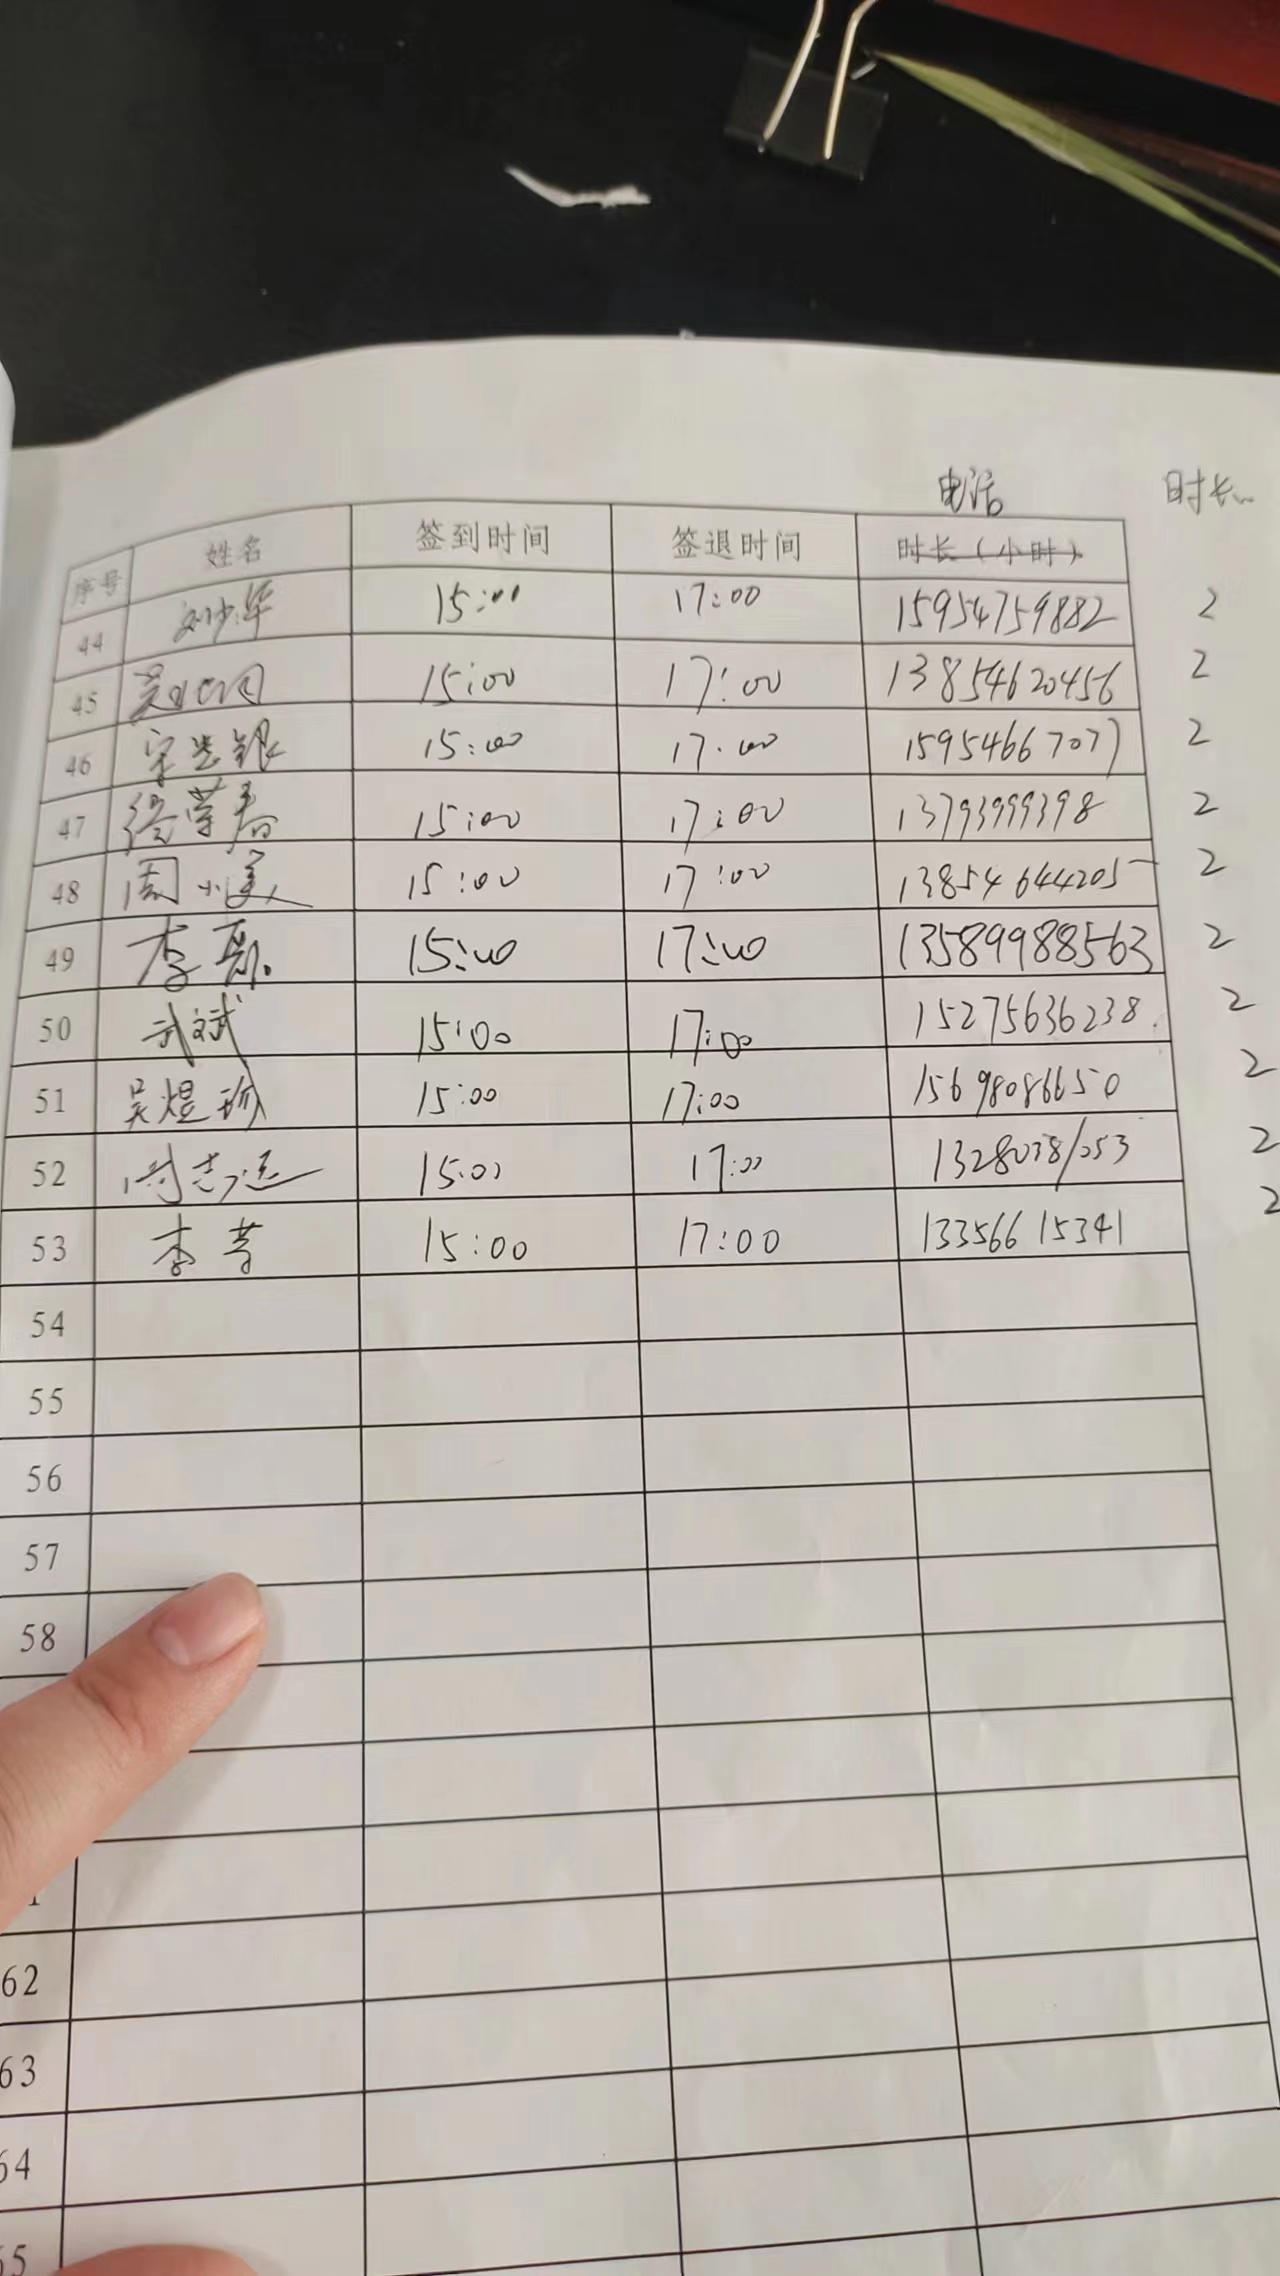 电话 时长
序号 姓名 签到时间 签退时间 时长（小时）
44 刘少华 15:00 17:00 15954759882 2
45 15:00 17:00 13854620456 2
46 宋志银 15:00 17:00 15954667077 2
47 15:00 17:00 13793999398 2
48 周小美 15:00 17:00 13854644205 2
49 李 15:00 17:00 13589988563 2
50 武斌 15:00 17:00 15275636238 2
51 吴煜珍 15:00 17:00 15698086650 2
52 志远 15:00 17:00 13280381053 2
53 李芳 15:00 17:00 13356615341 2
54
55
56
57
58
62
63
64
65